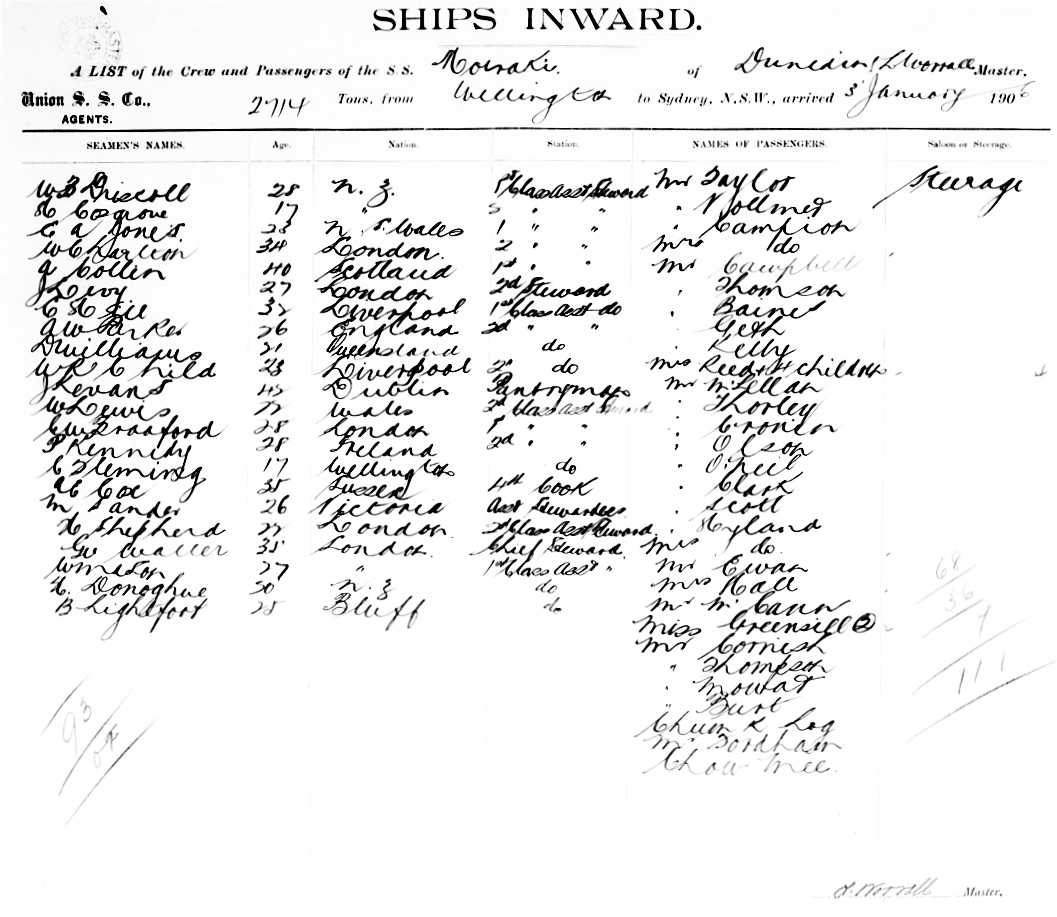 SHIPS INWARD.
A LIST of the Crew and Passengers of the S.S. Moeraki. of Dunedin, L Worrall Master,
Union S. S. Co., 2714 Tons, from Wellington to Sydney, N.S.W., arrived 3 January 1906
AGENTS.
SEAMEN'S NAMES. Age. Nation. Station. NAMES OF PASSENGERS. Saloon or Steerage.
Driscoll 28 N. Z. 1st Class Asst Steward Mr Taylor Steerage
Cosgrove 17 " " " " Vollmer
C A Jones 23 N S. Wales 1 " " " Campion
34 London. 2 " " Mrs do
Collin 40 Scotland 1st " " Mr Campbell
J Levy 27 London 2nd Steward " Thomson
32 Liverpool 1st Class Asst do Baines
A W Parker 26 England 2d " "
D Williams 21 Queensland do Kelly
W R Child 23 Liverpool 2d do Mrs Reed & children
J Evans 45 Dublin Pantryman Mr McLellan
W Lewis 22 Wales 2nd Class Asst Steward " Thorley
C W Bradford 28 London 1st " " " Cronin
P Kennedy 28 Ireland 2d " " " Olson
C Fleming 17 Wellington do " O'Neil
Cox 35 Sussex 4th Cook " Clark
M Sander 26 Victoria Asst Stewardess " Scott
H Shepherd 22 London 2nd Class Asst Steward " Hyland
Waller 35 London. Chief Steward. Mrs do.
W Maton 27 " 1st Class Asst " Mr Ewan
H. Donoghue 30 N. Z do Mrs Hall
B Lightfoot 25 Bluff do Mr McCann
Miss Greensill (2)
Mr Cornish
" Thompson
" Mowat
" Burt
Chum K Log
Mr Fordham
Chow Mee.
68
36
7
111
93
L. Worrall Master.